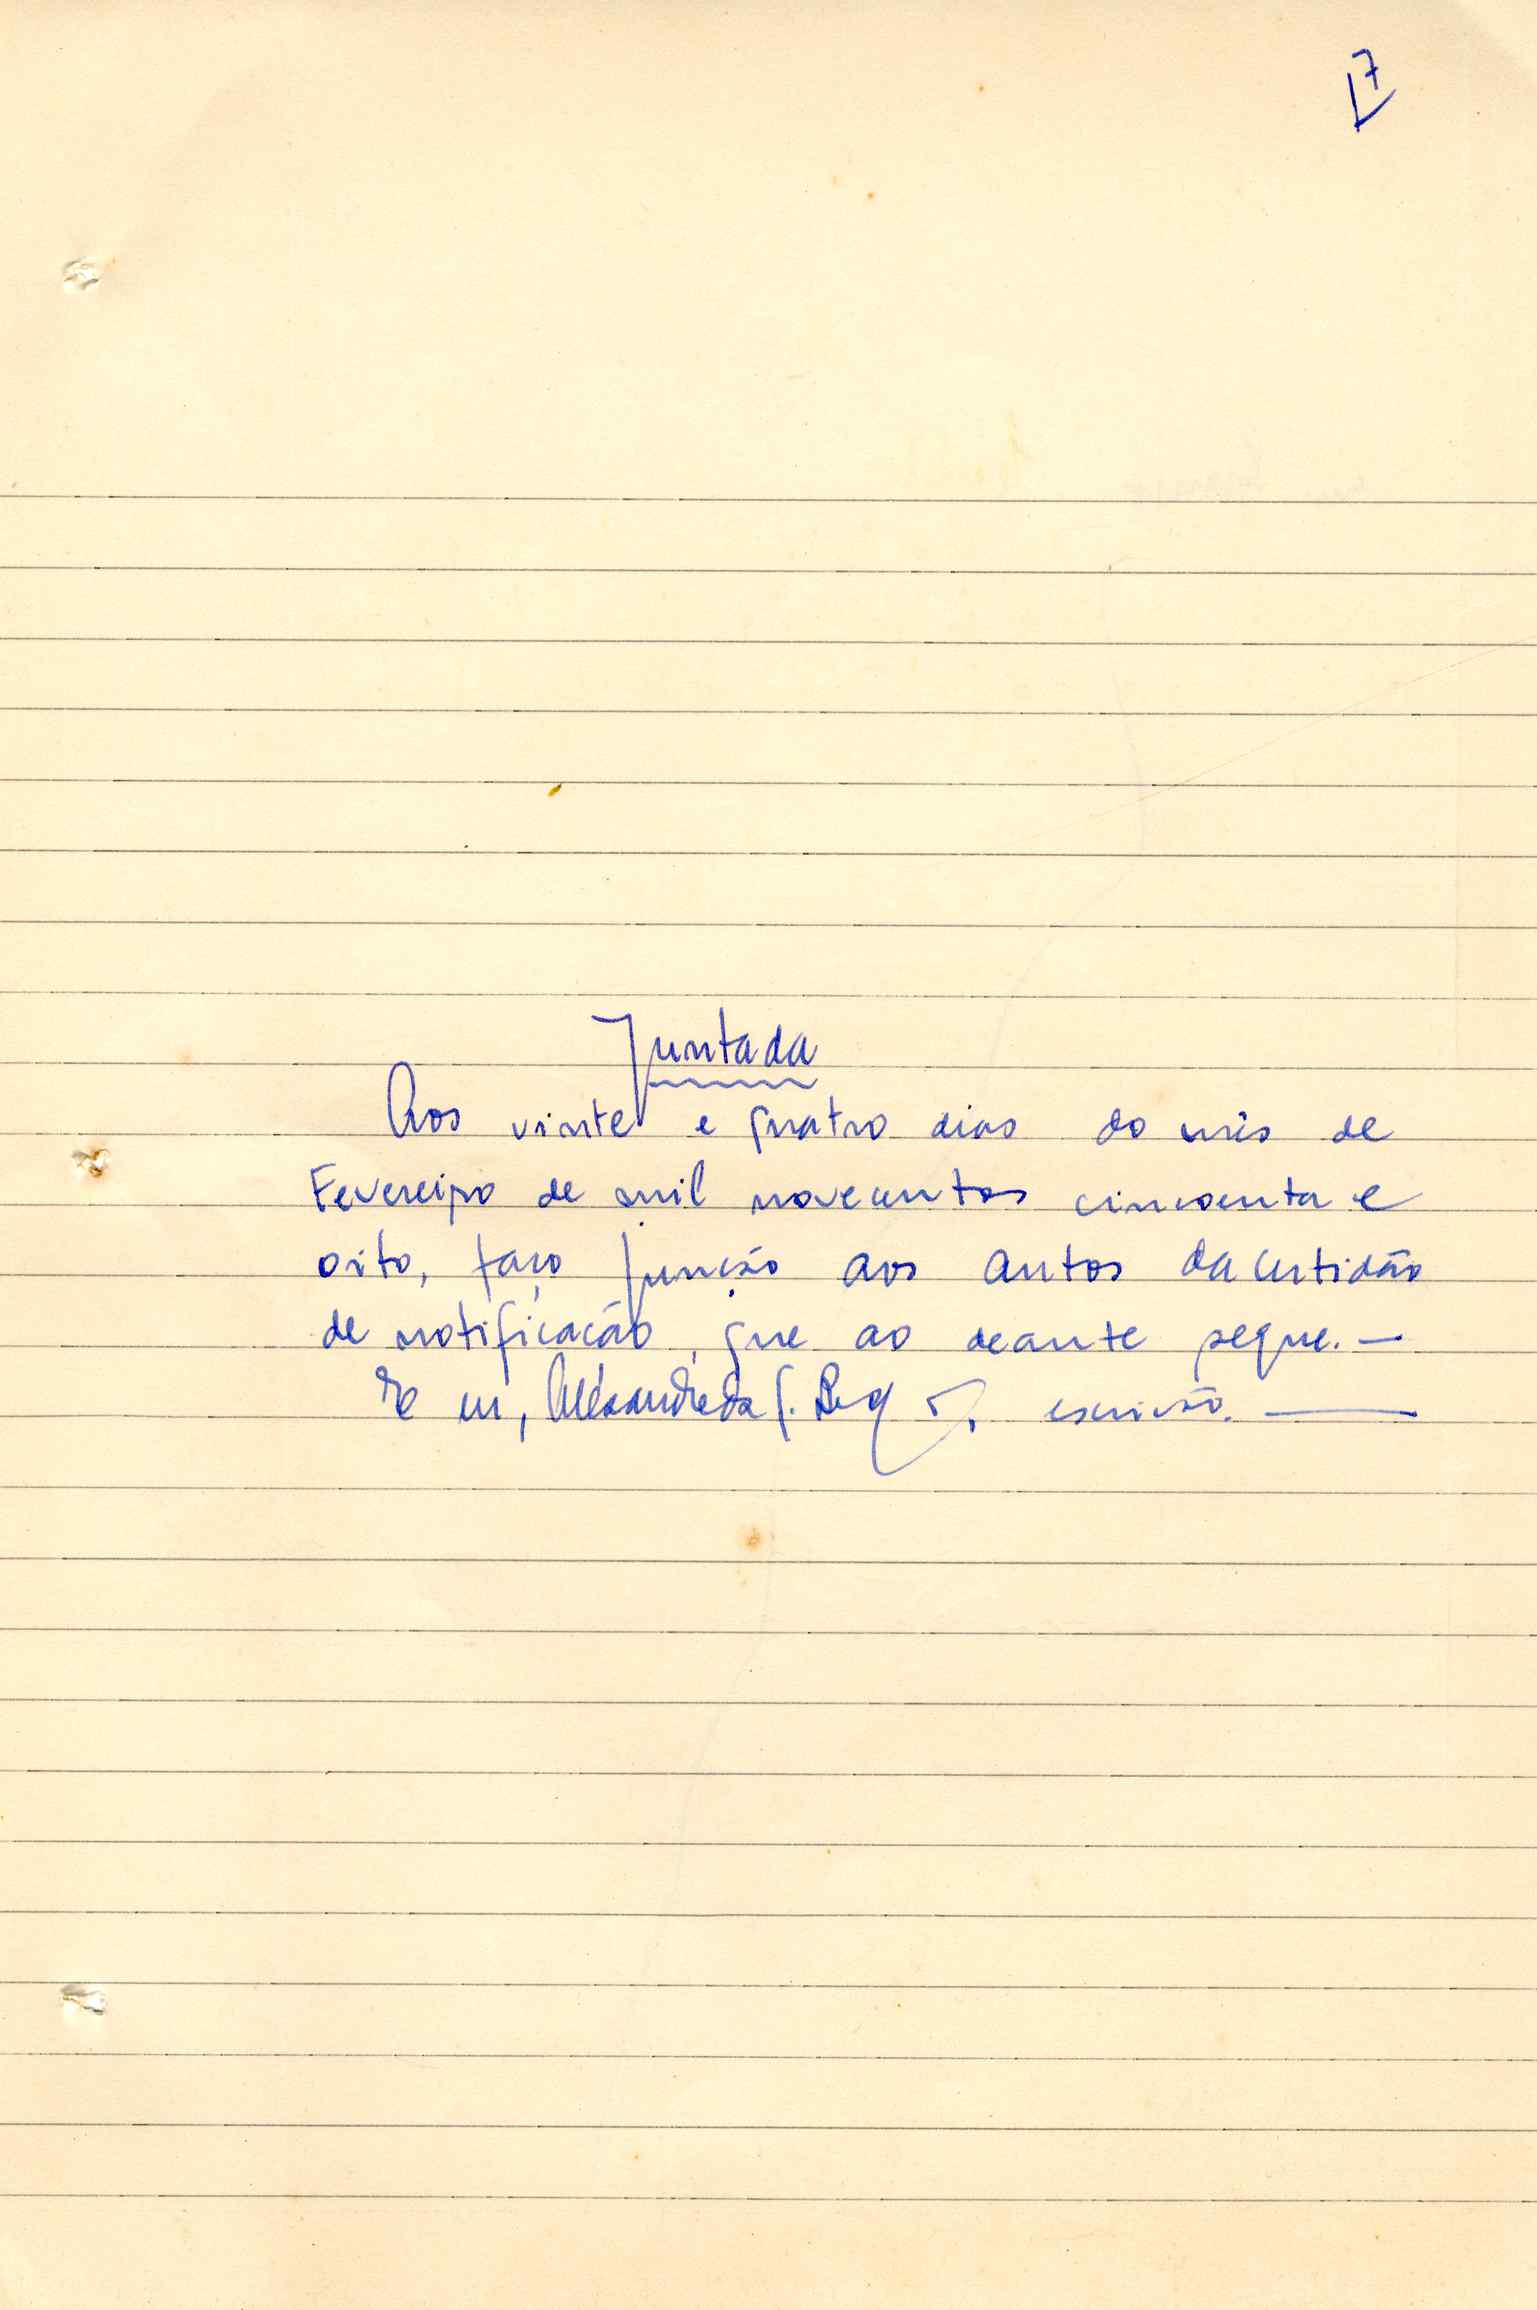 7
Juntada
Aos vinte e quatro dias do mês de
Fevereiro de mil novecentos cincoenta e
oito, faço junção aos autos da certidão
de notificação, que ao deante segue. —
E eu, escrivão. —